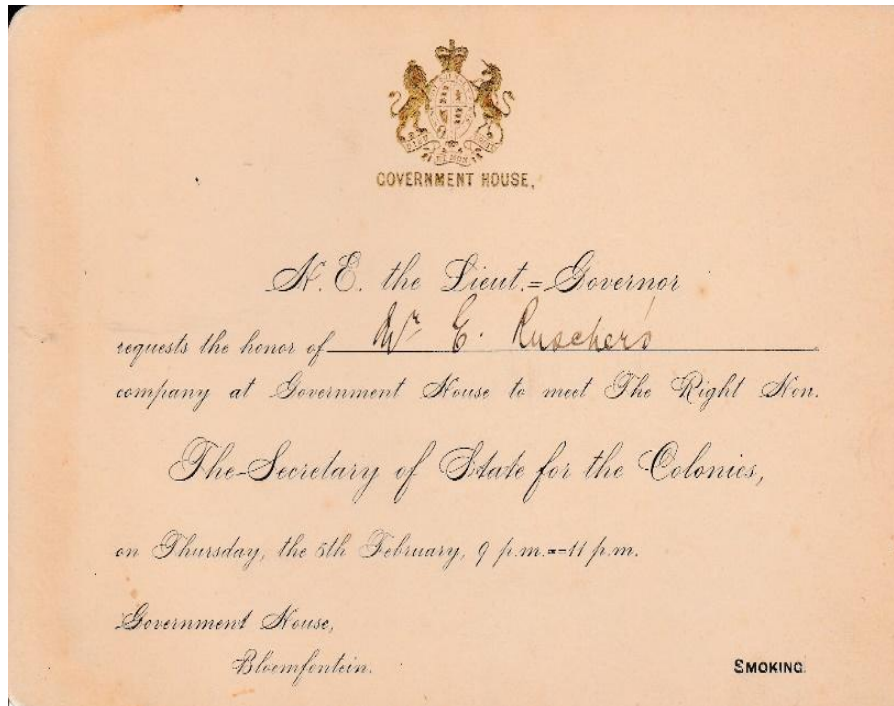 GOVERNMENT HOUSE,
H. E. the Lieut.=Governor
requests the honor of Mr E. Ruscher's
company at Government House to meet The Right Hon.
The Secretary of State for the Colonies,
on Thursday, the 5th February, 9 p.m.=11 p.m.
Government House,
Bloemfontein.
SMOKING.